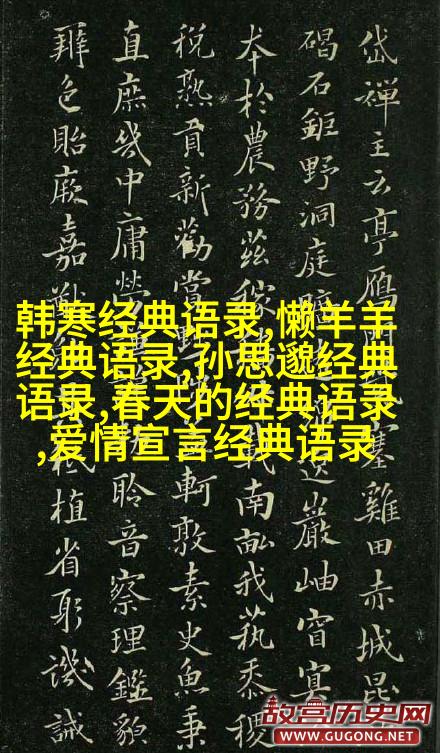 岱禪主云亭鴈塞雞田赤城昆
碣石鉅野洞庭巖岫窅冥
本於農務茲稼載南畝我蓺黍稷
稅熟貢新勸賞軻敦素史魚秉
直庶幾中庸勞聆音察理鑑貌
辯色貽厥嘉猷祗植省躬譏誡
韩寒经典语录,懒羊羊
经典语录,孙思邈经典
语录,春天的经典语录
,爱情宣言经典语录
故宫历史网
WWW.GUGONG.NET